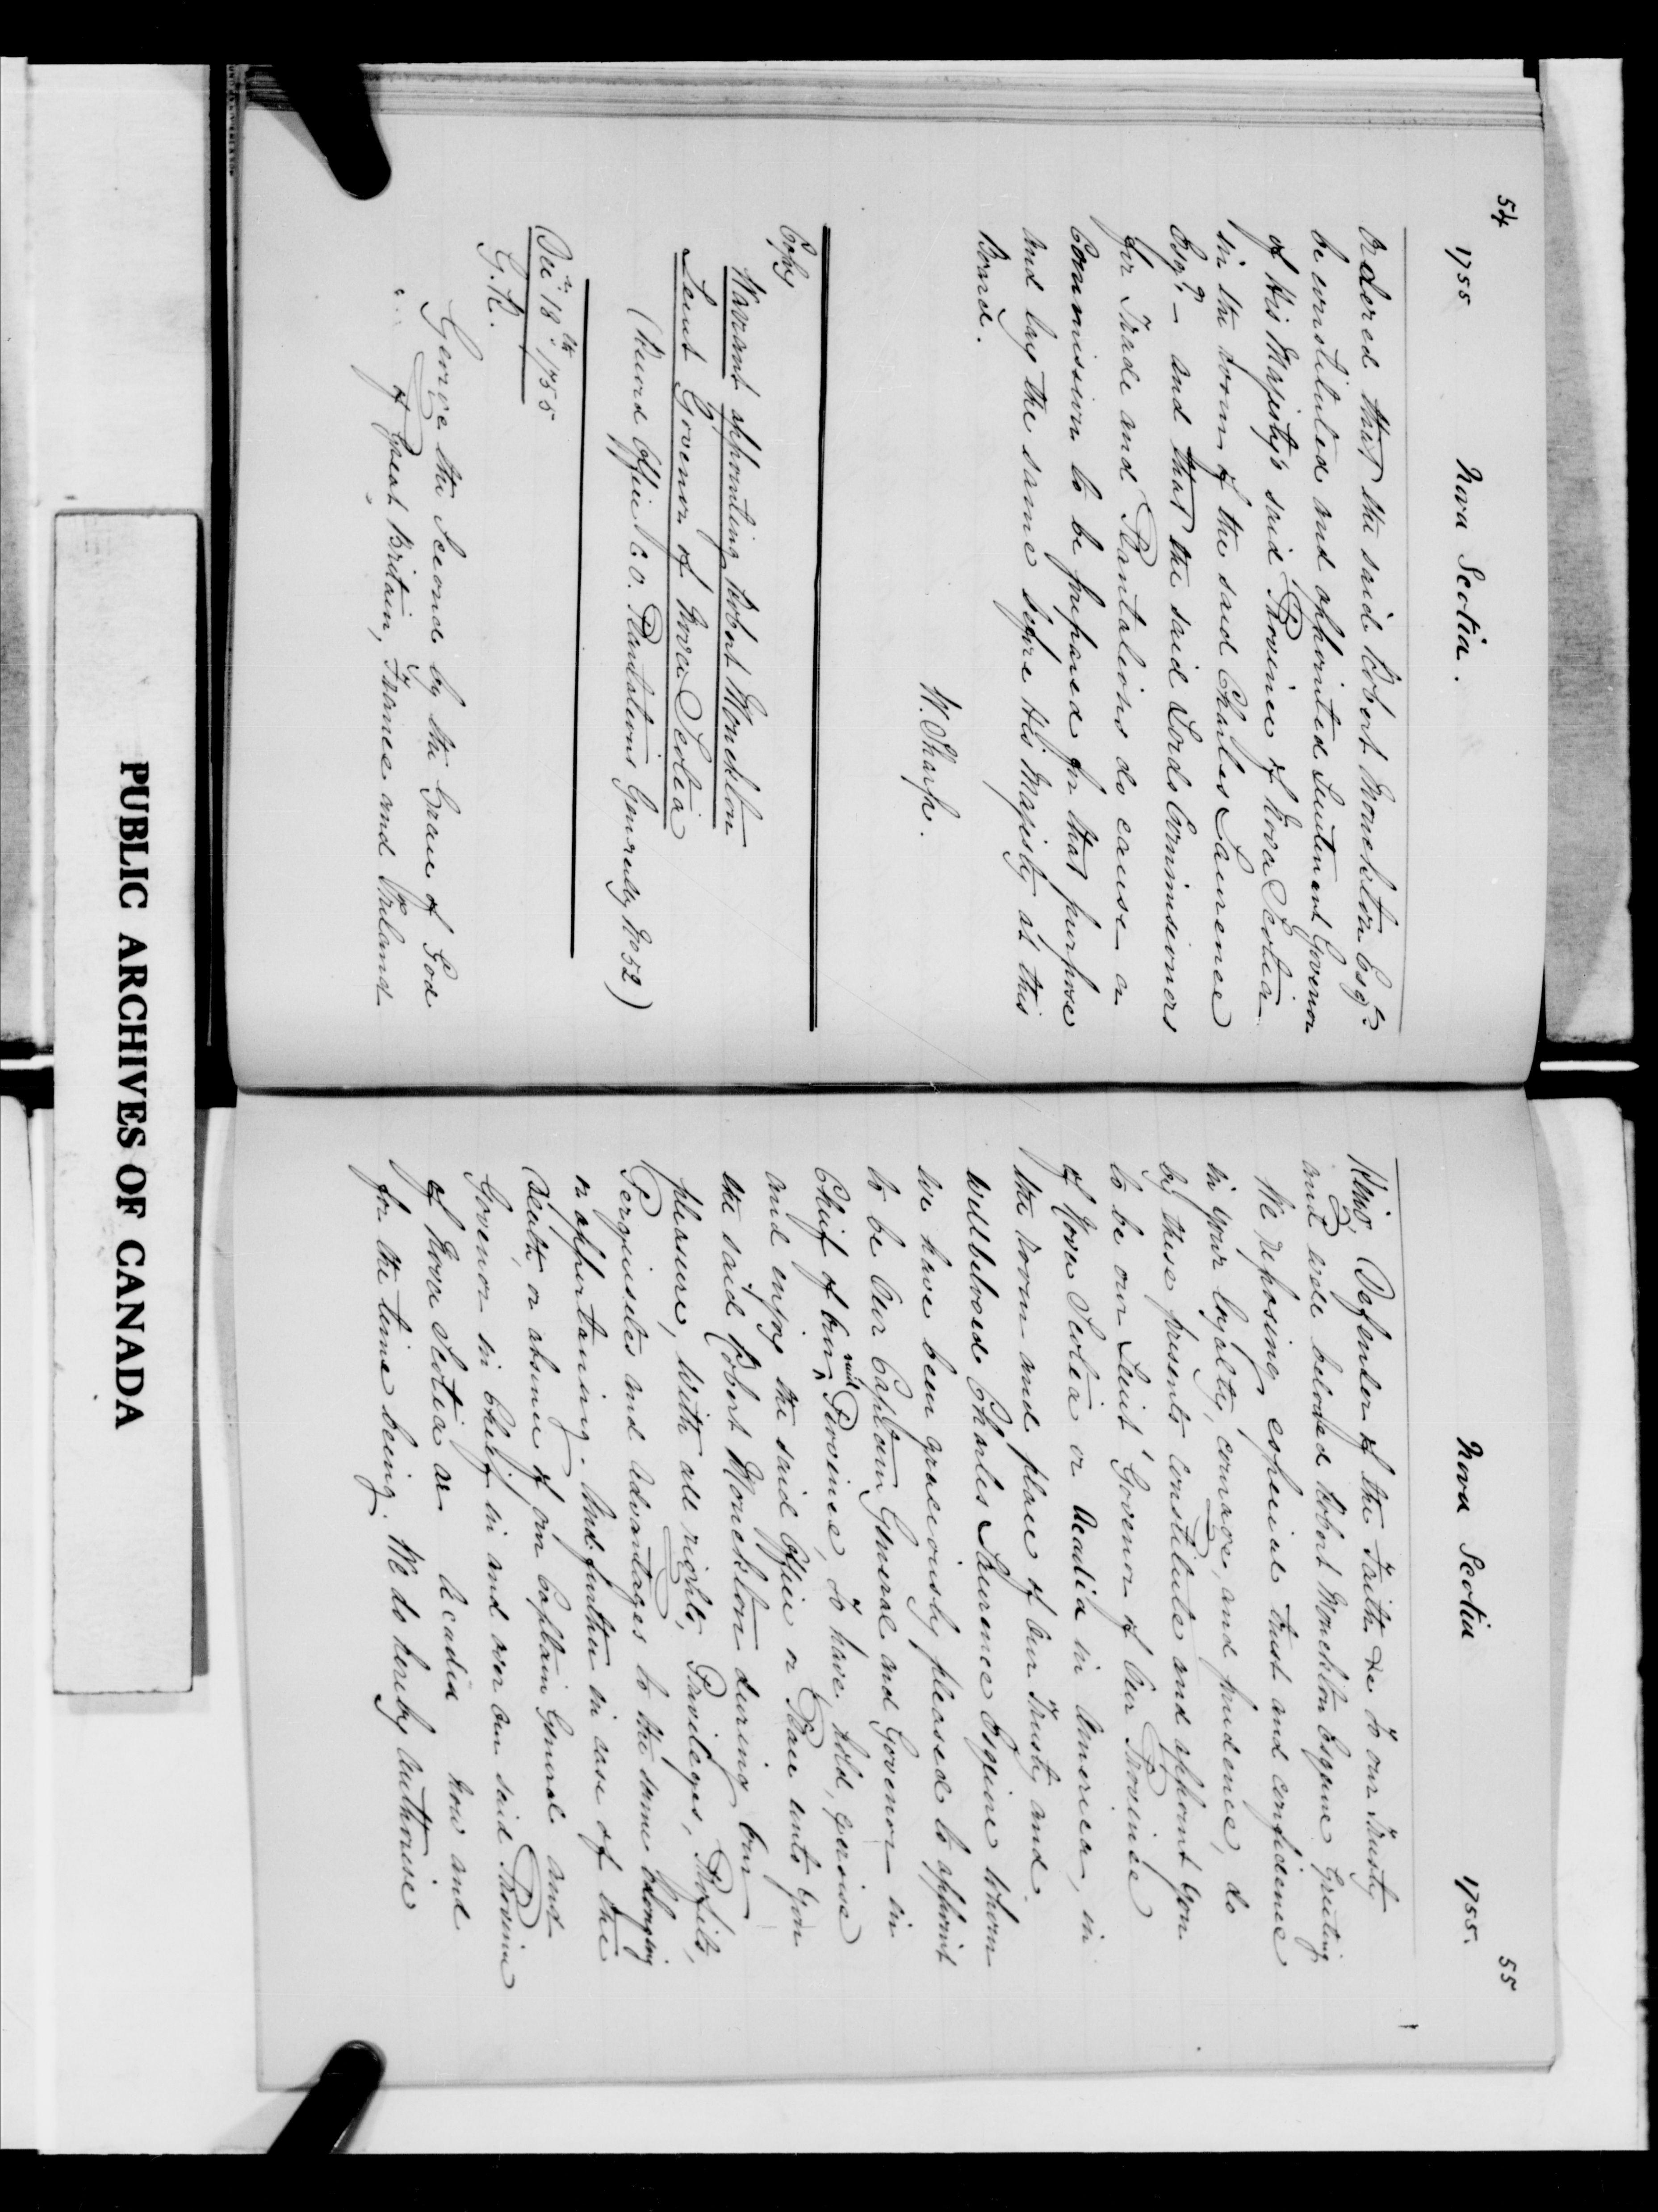 54
1755 Nova Scotia.
Ordered that the said Robert Monckton Esqr.
be constituted and appointed Lieutenant Governor
of His Majesty's said Province of Nova Scotia
in the room of the said Charles Laurence
Esqr. - and that the said Lords Commissioners
for Trade and Plantations do cause a
Commission to be prepared for that purpose
and lay the same before His Majesty at this
Board.
W. Sharpe.
Copy
Warrant appointing Robert Monckton
Lieut Governor of Nova Scotia
(Record Office C.O. Plantations Generally No 52)
Decr. 18th. 1755
G.R.
George the Second by the Grace of God
of Great Britain, France and Ireland
55
Nova Scotia 1755.
King, Defender of the Faith &c To our Trusty
and well beloved Robert Monckton Esquire Greeting
We reposing especial trust and confidence
in your loyalty, courage, and prudence, do
by these presents constitute and appoint you
to be our Lieut Governor of Our Province
of Nova Scotia or Acadia in America, in
the room and place of Our Trusty and
Wellbeloved Charles Laurence Esquire whom
we have been graciously pleased to appoint
to be Our Captain General and Governor in
Chief of Our said Province, To have, hold, exercise
and enjoy the said Office or Place unto you
the said Robert Monckton during Our
pleasure, with all rights, Privileges, Profits,
Perquisites and Advantages to the same belonging
or appertaining. And further in case of the
Death, or absence of our Captain General and
Governor in Chief in and over Our said Province
of Nova Scotia or Acadia now and
for the time being. We do hereby authorise
PUBLIC ARCHIVES OF CANADA